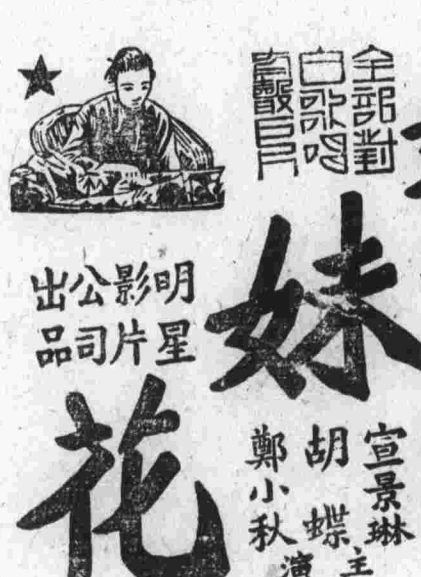 全部對
白歌唱
有聲巨片
妹
花
明星
影片
公司
出品
宣景琳
胡蝶
鄭小秋
主演